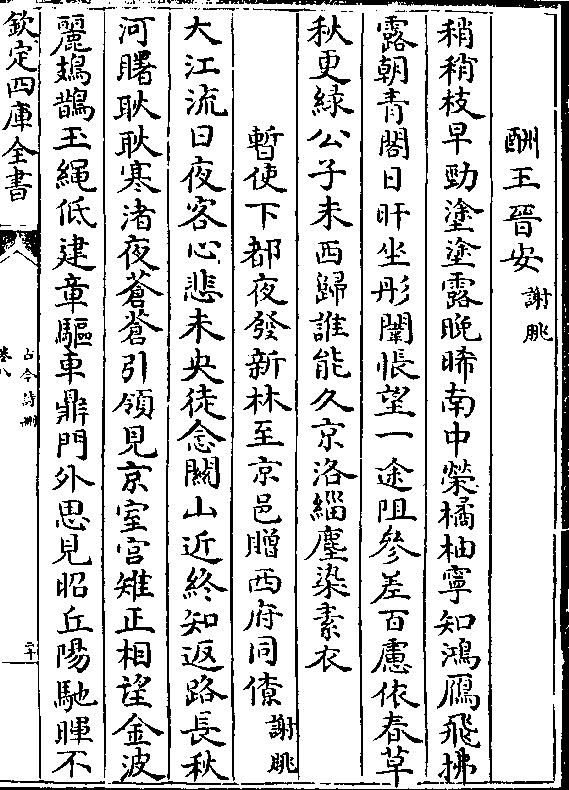 酬王晉安 謝朓
稍稍枝早勁塗塗露晩晞南中榮橘柚寧知鴻鴈飛拂
露朝青閣日旰坐彤闈悵望一途阻參差百慮依春草
秋更緑公子未西歸誰能久京洛緇塵染素衣
暫使下都夜發新林至京邑贈西府同僚 謝朓
大江流日夜客心悲未央徒念闗山近終知返路長秋
河曙耿耿寒渚夜蒼蒼引領見京室宮雉正相望金波
麗鳷鵲玉繩低建章驅車鼎門外思見昭丘陽馳暉不
欽定四庫全書
古今詩刪
卷八
二十